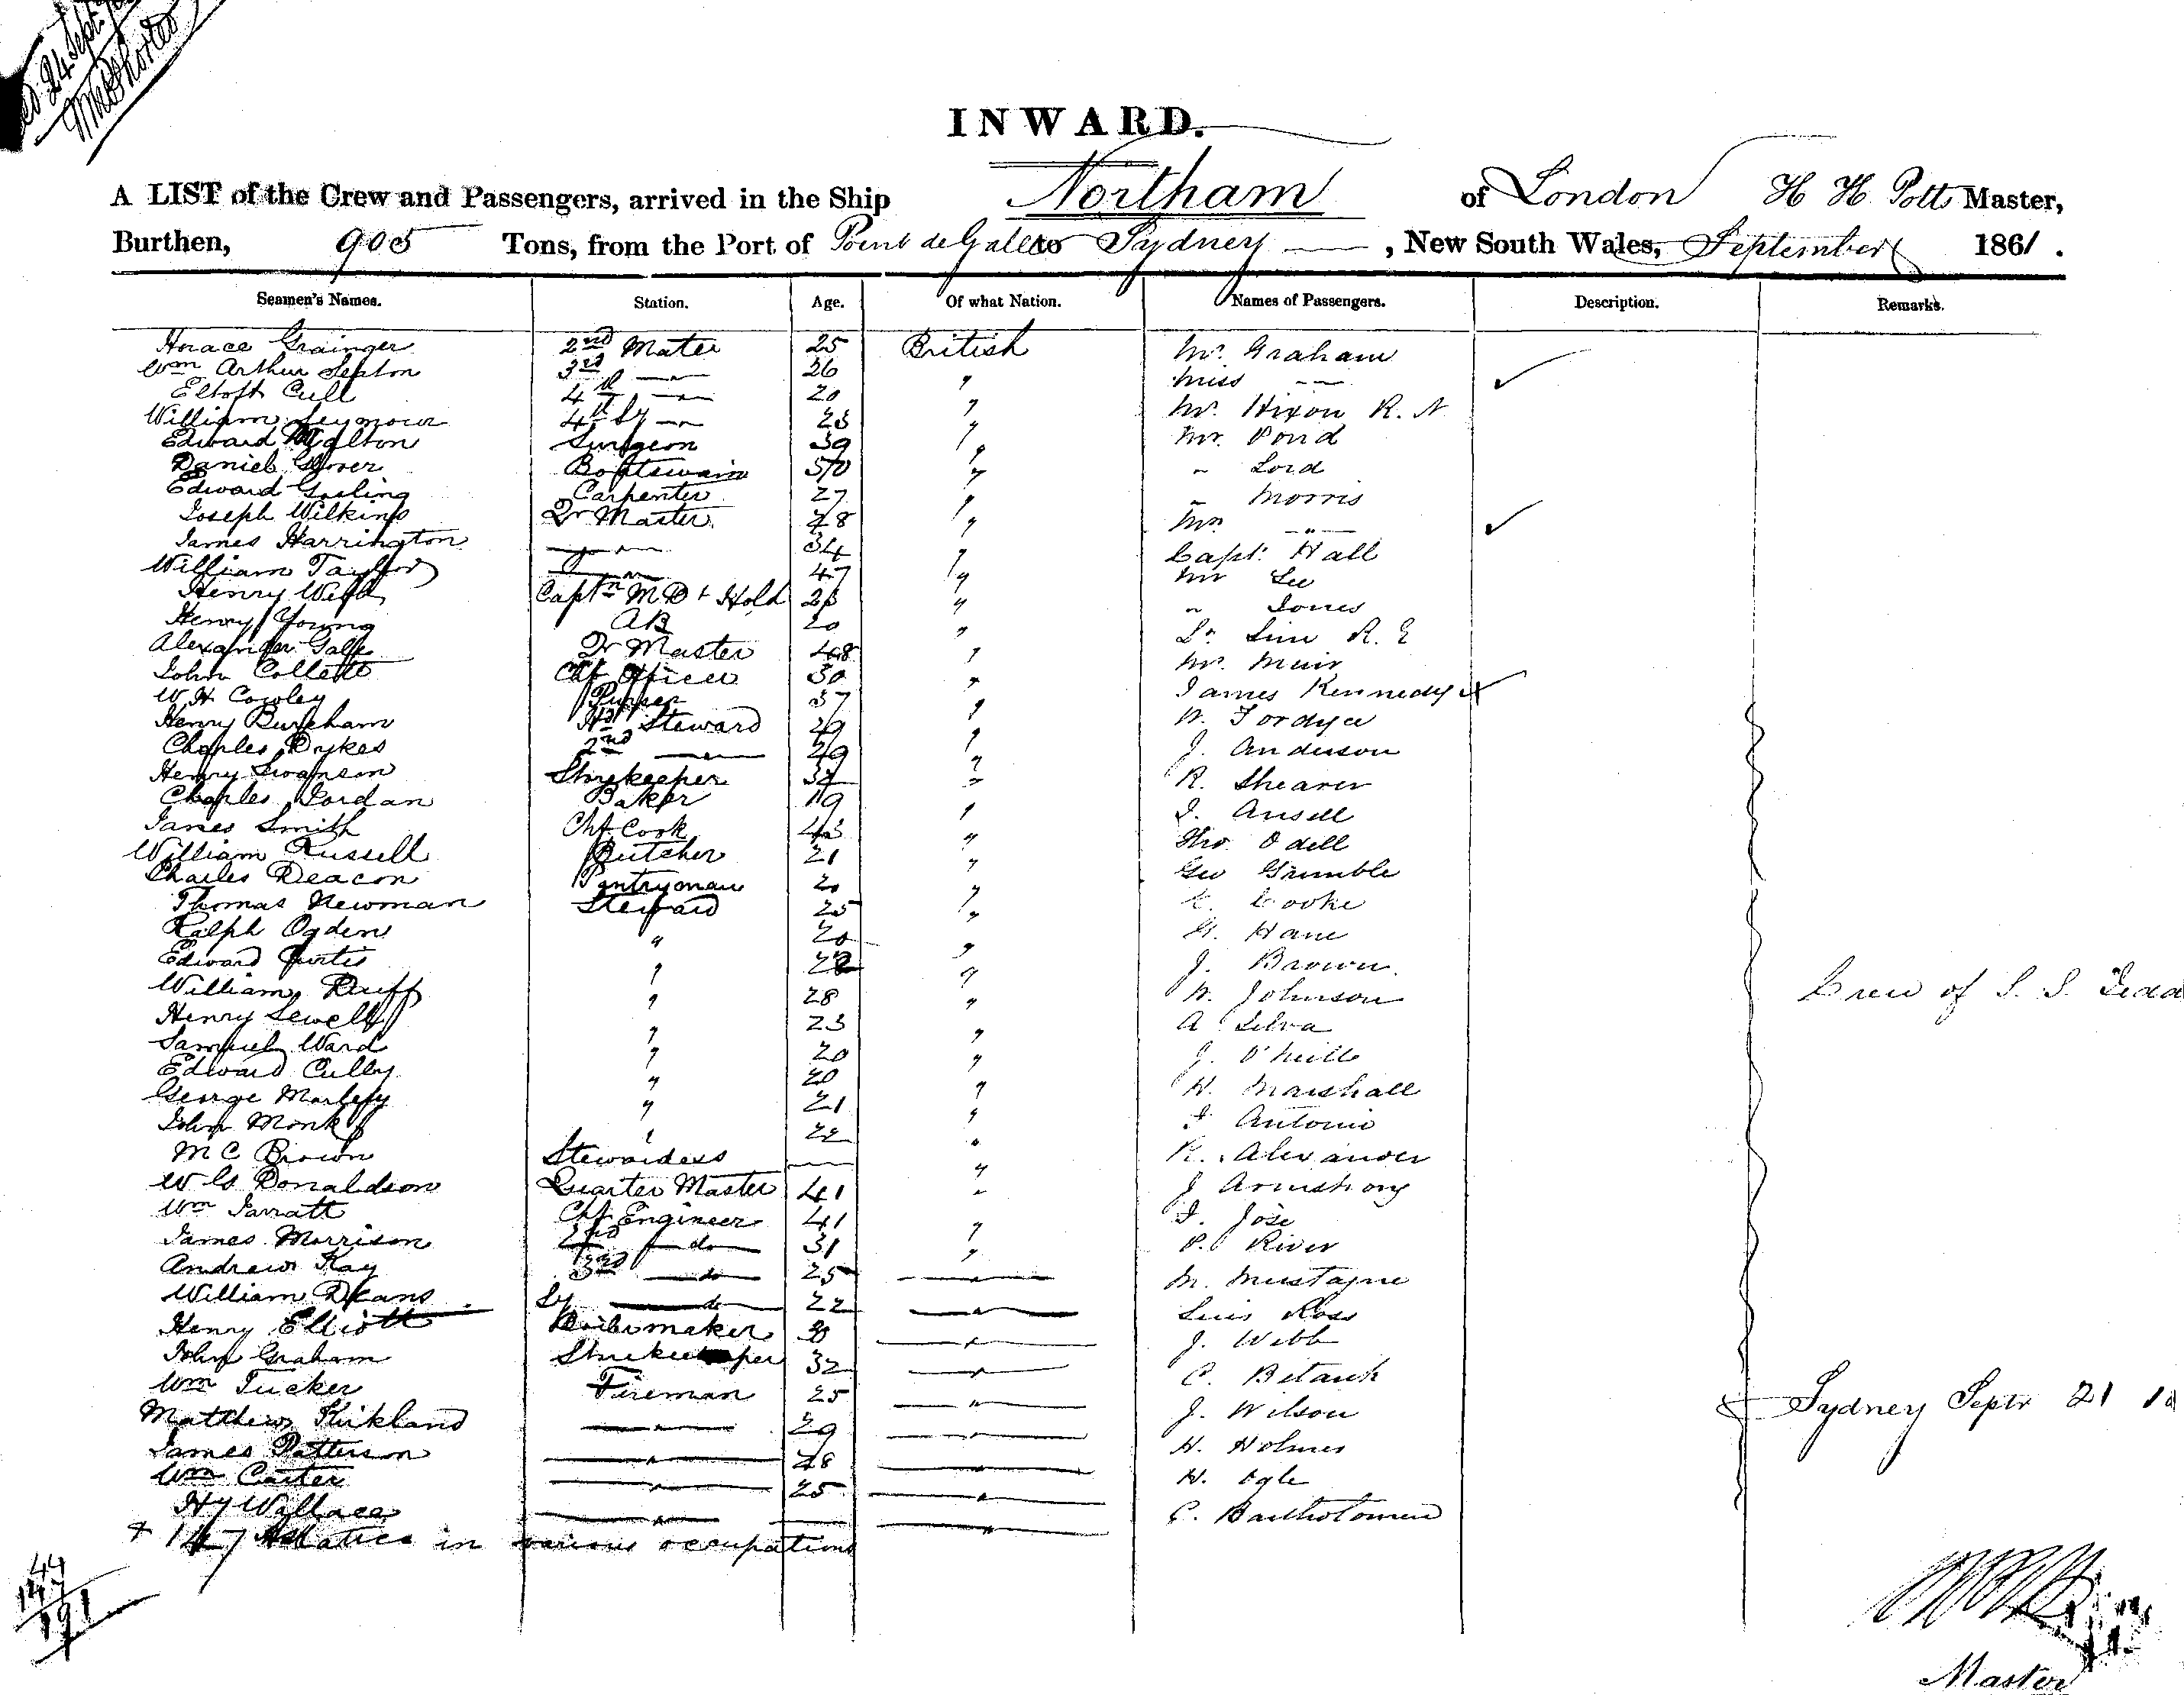 24 Sept
INWARD.
A LIST of the Crew and Passengers, arrived in the Ship Northam of London H H Potts Master,
Burthen, 905 Tons, from the Port of Point de Galle to Sydney, New South Wales, September 1861.
Seamen's Names. Station. Age. Of what Nation. Names of Passengers. Description. Remarks.
Horace Grainger 2nd Mate 25 British Mr. Graham
Wm Arthur Seaton 3rd -"- 26 " Miss -"- ✓
Eltoft Cull 4th -"- 20 " Mr. Hixon R. N
William Seymour 4th -"- 23 " Mr. Pond
Edward Walton Surgeon 39 " " Lord
Daniel Boatswain 50 " " Morris
Edward Gosling Carpenter 27 " Mrs -"- ✓
Joseph Wilkins Qr Master 28 " Capt. Hall
James Harrington -"- 34 " Mr Lee
William Taylor -"- 47 " " Jones
Henry Webb Captn M D + Hold " R. E
Henry Young AB 20 " Mr. Muir
Alexander Qr Master 48 " James Kennedy
John Collett Chf Officer 30 " W. Fordyce
W H Cowley Purser 37 " J. Anderson
Henry Burcham Hd Steward 29 " R. Shearer
Charles Dykes 2nd -"- 29 " J. Ansell
Henry Swanson Storekeeper " Tho. Odell
Charles Jordan Baker 19 " Geo Grimble
James Smith Chf Cook 43 " Cooke
William Russell Butcher 21 " Hane
Charles Deacon Pantryman 20 " J. Brown
Thomas Newman Steward 25 " W. Johnson
Ralph Ogden " 20 " A Silva
Edward Curtis " " J. O'Neille
William Ruff " 28 " H. Marshall
Henry Sewell " 23 " J. Antonio
Samuel Ward " 20 " R. Alexander
Edward Culley " 20 " J Armstrong
George " 21 " J. Jose
John Monk " 22 " P. River
M C Brown Stewardess — " M.
W G Donaldson Quarter Master 41 " Luis Ross
Wm Jarratt Chf Engineer 41 " J. Webb
James Morrison 2nd do 31 " C.
Andrew Kay 3rd do 25 -"- J. Wilson
William Deans do 22 -"- H. Holmes
Henry Elliott Boilermaker 30 -"- H. Ogle
John Graham Storekeeper 32 -"- C. Bartholomew
Wm Tucker Fireman 25 -"-
Matthew Kirkland -"- 29 -"-
James Patterson -"- 28 -"-
Wm Carter -"- 25 -"-
Hy Wallace -"- — -"-
+ 147 Asiatics in various occupations
Crew of S. S.
Sydney Septr 21
44
147
191
Master